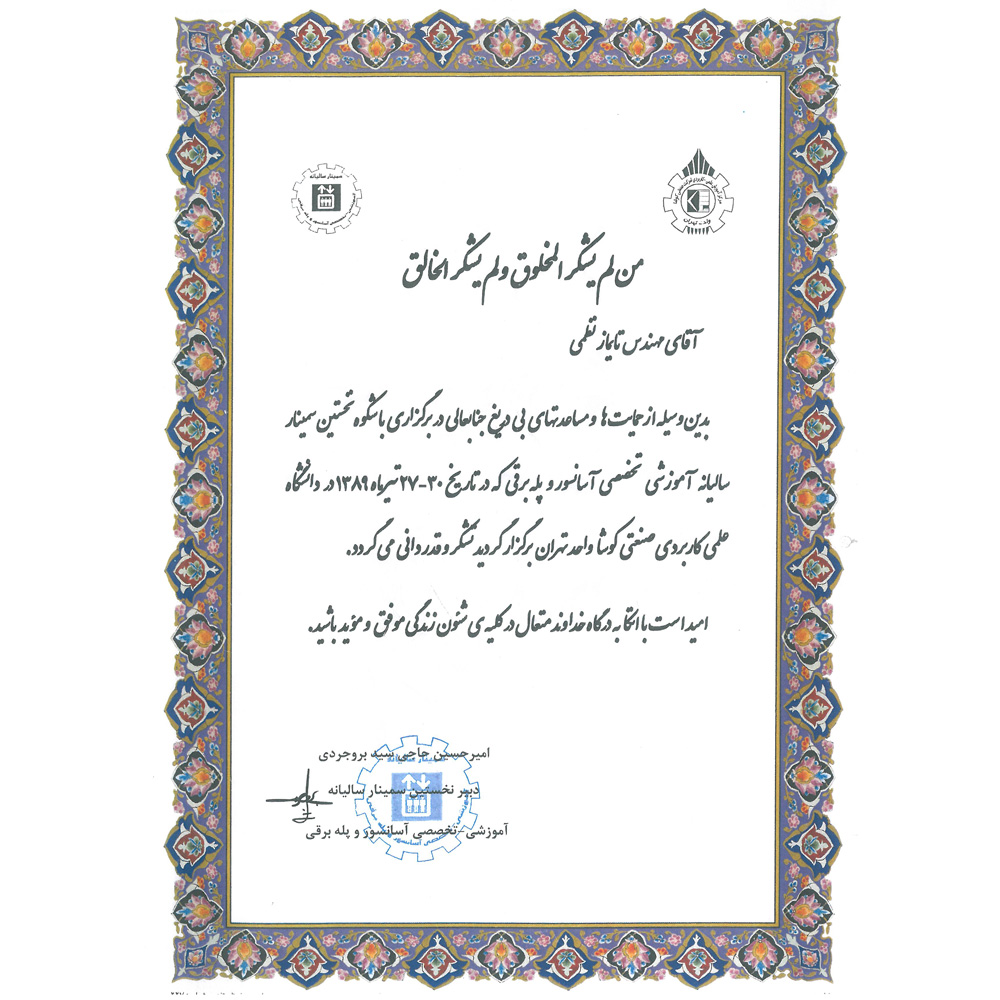 سمینار سالیانه
من لم یشکر المخلوق و لم یشکر الخالق
آقای مهندس تایماز نظمی
بدین وسیله از حمایت ها و مساعدتهای بی دریغ جنابعالی در برگزاری با شکوه نخستین سمینار
سالیانه آموزشی تخصصی آسانسور و پله برقی که در تاریخ ۳۰-۲۷ تیرماه ۱۳۸۹ در دانشگاه
علمی کاربردی صنعتی کوشا واحد تهران برگزار گردید تشکر و قدردانی می گردد.
امید است با اتکا به درگاه خداوند متعال در کلیه ی شئون زندگی موفق و مؤید باشید.
امیرحسین حاجی سید بروجردی
دبیر نخستین سمینار سالیانه
آموزشی-تخصصی آسانسور و پله برقی
سمینار سالیانه